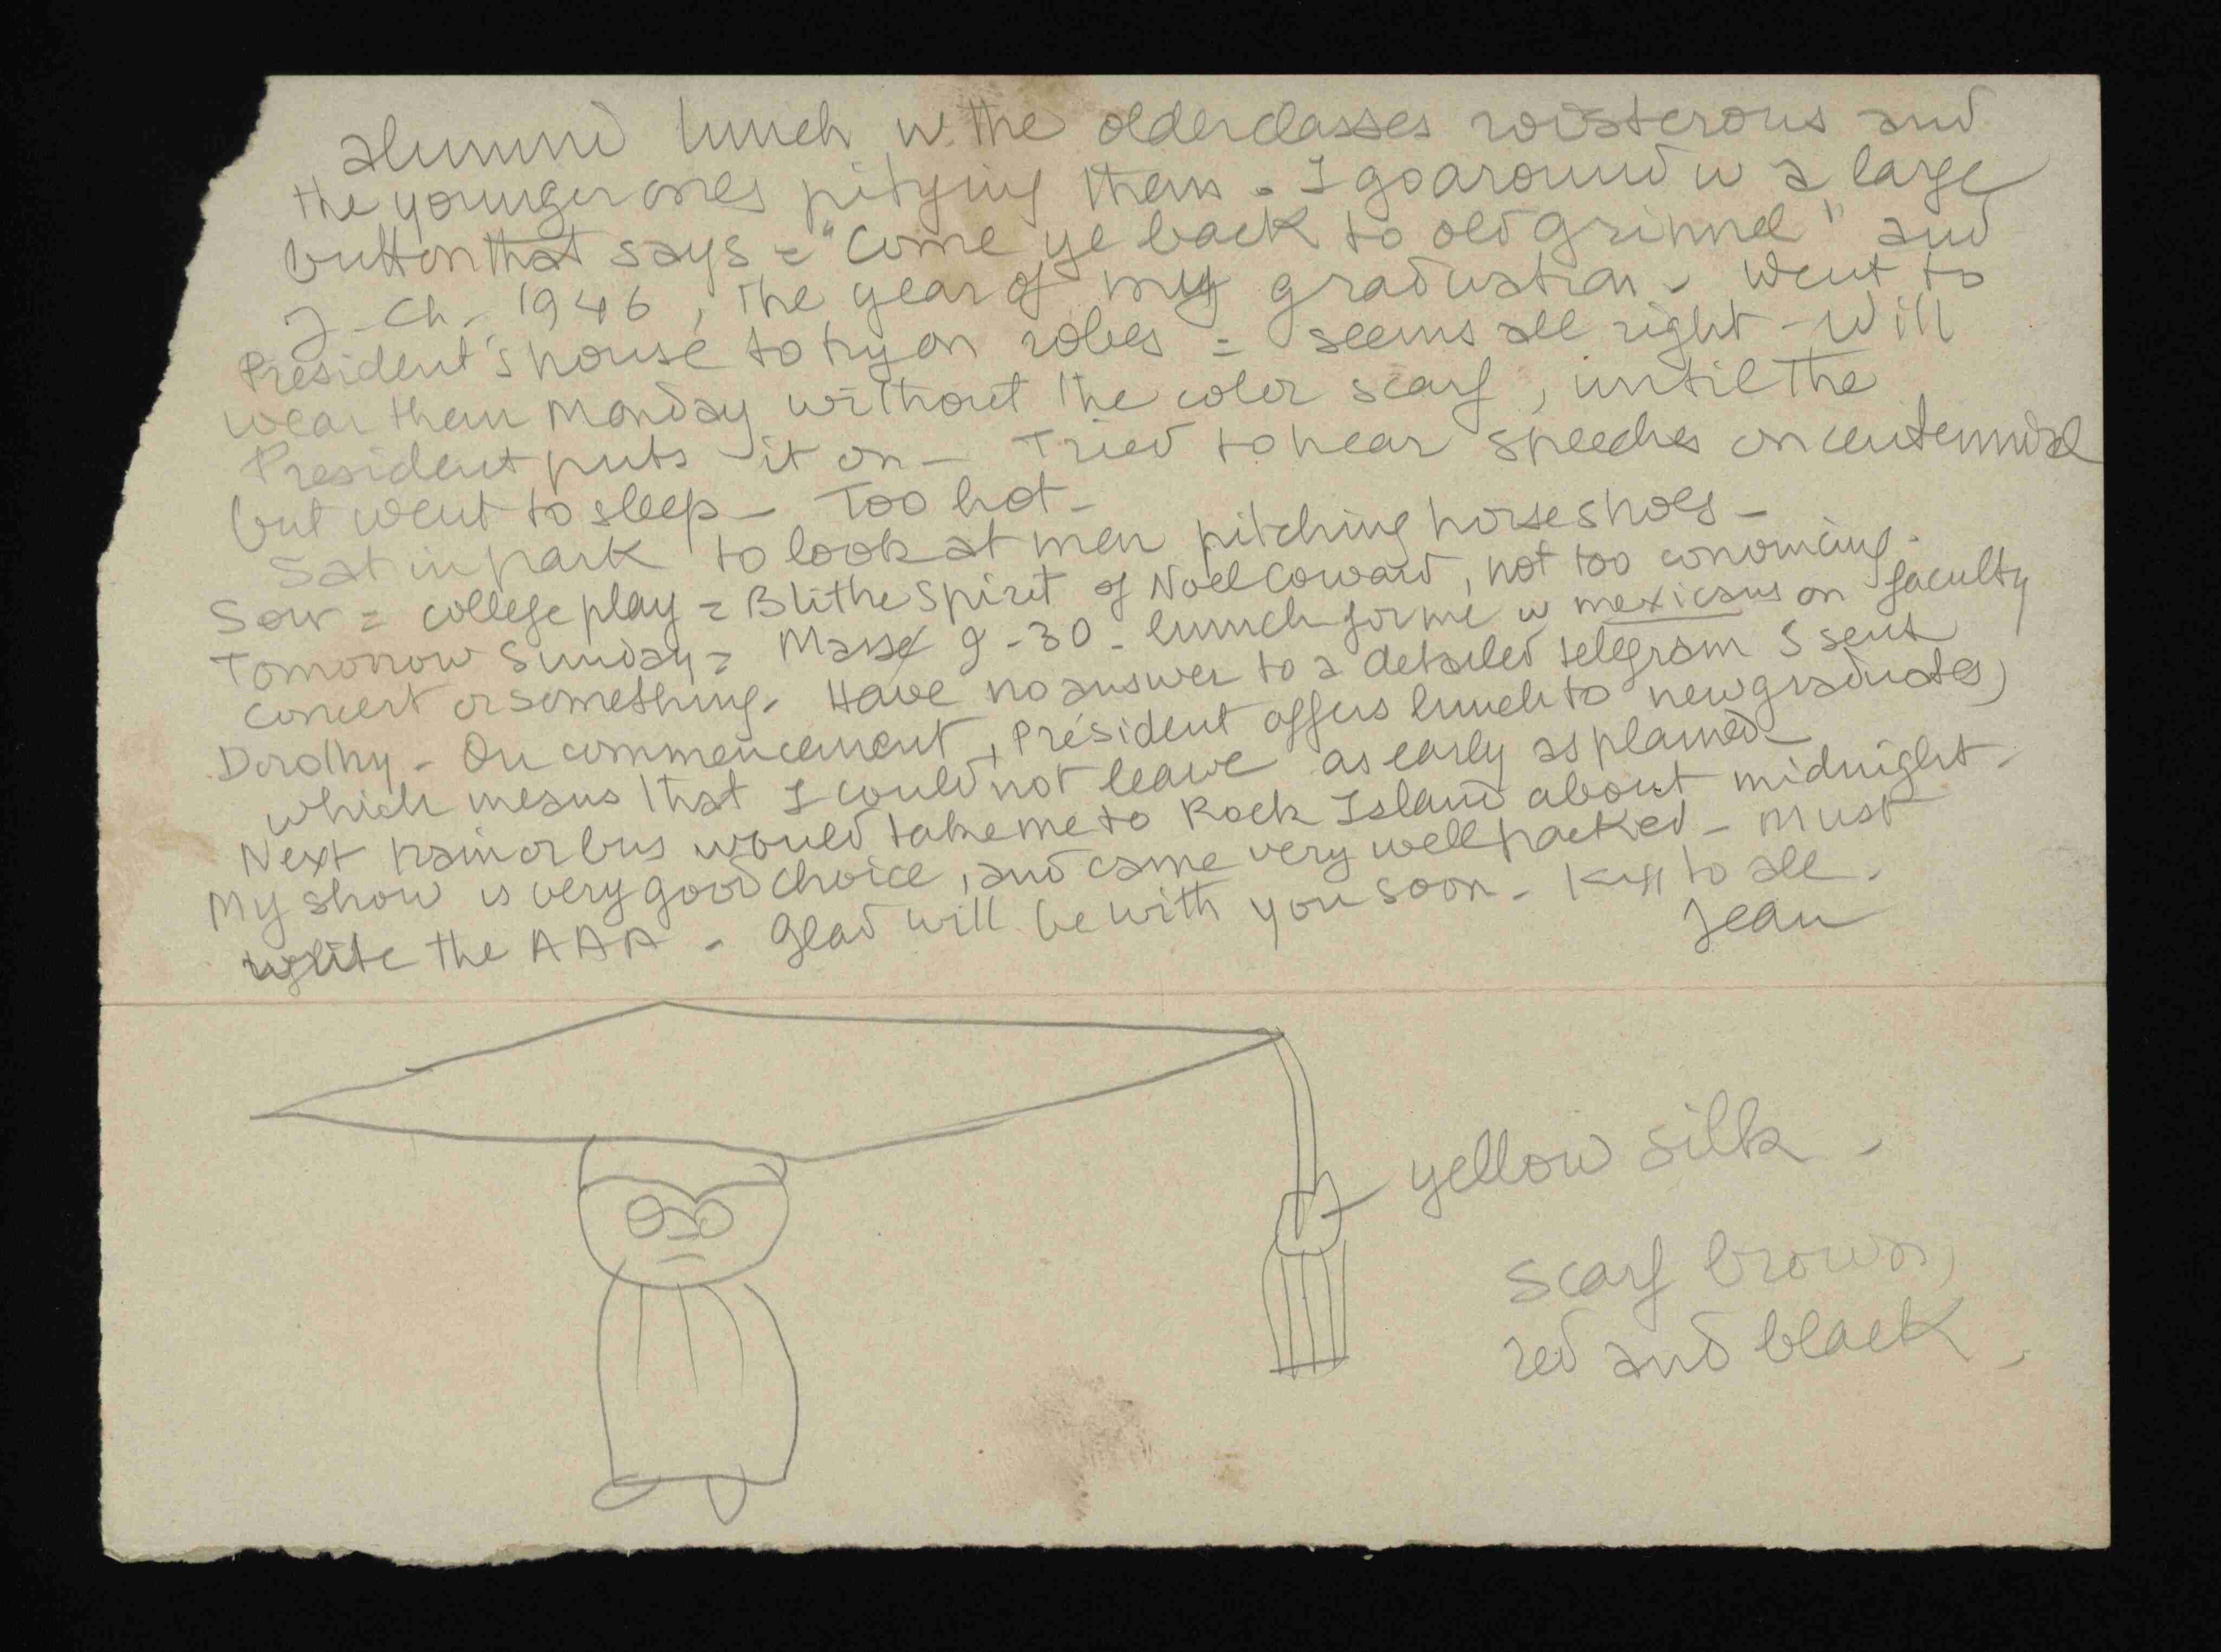 alumni lunch w. the older classes roisterous and
the younger ones pitying them - I go around w a large
button that says = "Come ye back to old Grinnel" and
J - Ch - 1946, the year of my graduation - Went to
President's house to try on robes = seems all right - Will
wear them Monday without the color scarf, until the
President puts it on - Tried to hear speeches on centennial
but went to sleep - Too hot -
Sat in park to look at men pitching horse shoes -
Saw = college play = Blithe Spirit of Noel Coward, not too convincing.
Tomorrow Sunday = Masse 9-30 - lunch for me w mexicans on faculty
concert or something. Have no answer to a detailed telegram I sent
Dorothy - On commencement, President offers lunch to new graduates,
which means that I could not leave as early as planned -
Next train or bus would take me to Rock Island about midnight -
My show is very good choice, and came very well packed - Must
write the AAA - Glad will be with you soon - Kiss to all.
Jean
yellow silk -
scarf brown,
red and black,